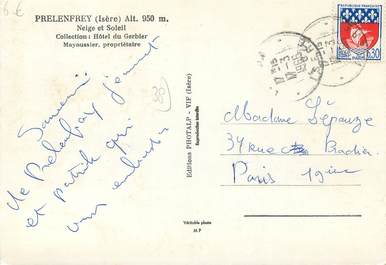 6-€
PRELENFREY (Isère) Alt. 950 m.
Neige et Soleil
Collection : Hôtel du Gerbier
Mayoussier, propriétaire
38
Souvenir
de Prelenfrey jeannot
et patrick qui
vous embrasse
Editions PHOTALP - VIF (Isère)
Reproduction interdite
Véritable photo
M P
REPUBLIQUE FRANÇAISE
0,30
PARIS
Madame Lépauze
37 rue
Paris 19ème